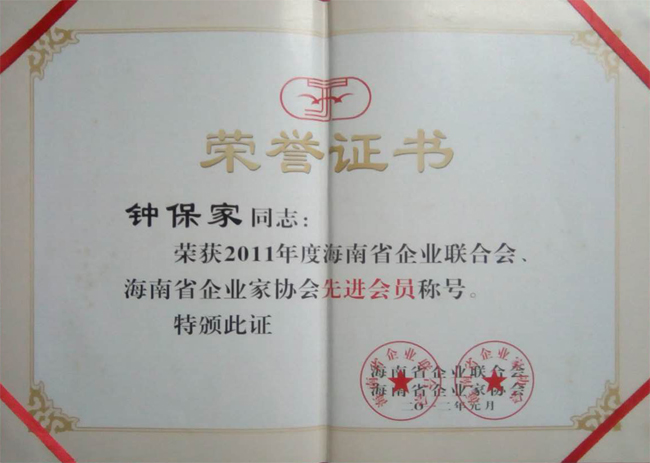 荣誉证书
钟保家同志：
荣获2011年度海南省企业联合会、
海南省企业家协会先进会员称号。
特颁此证
海南省企业联合会
海南省企业家协会
二〇一二年元月
海南省企业联合会
海南省企业家协会